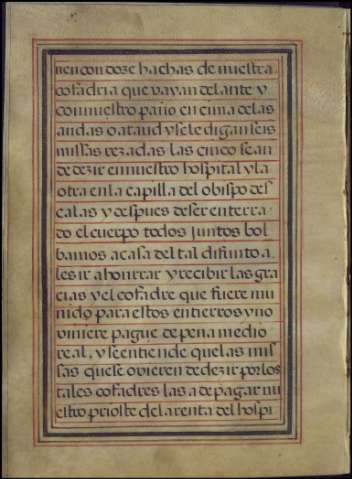 nen con doze hachas de nuestra
cofadria que vayan delante y
con nuestro paño en cima de las
andas o ataud y se le digan seis
missas rezadas las cinco sean
de dezir en nuestro hospital y la
otra en la capilla del obispo des
calas y despues de ser enterra
do el cuerpo todos juntos bol
bamos a casa del tal difunto a
les ir a honrrar y recibir las gra
cias y el cofadre que fuere mu
nido para estos entierros y no
viniere pague de pena medio
real, y se entiende que las mis
sas que se ovieren de dezir por los
tales cofadres las a de pagar nu
estro prioste de la renta del hospi